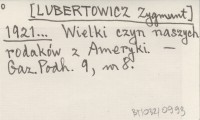 [LUBERTOWICZ Zygmunt]
1921... Wielki czyn naszych
rodaków z Ameryki. —
Gaz. Podh. 9, nr 8.